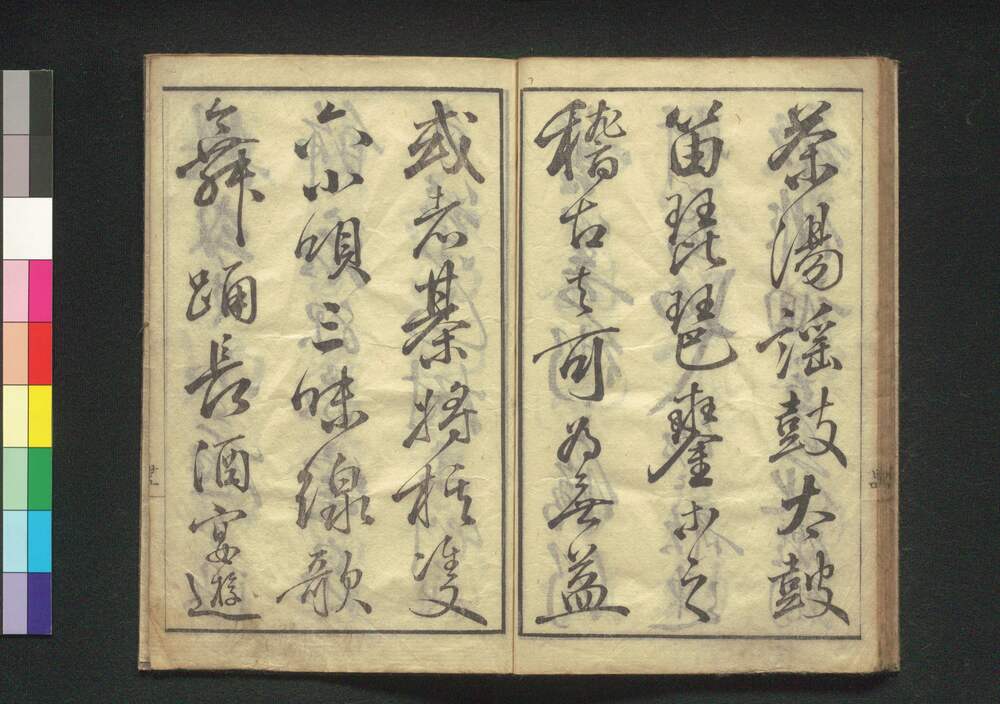 茶湯謡鼓太鼓
笛琵琶等之
稽古可為無益
或者棊将棋双
六小唄三味線歌
舞踊長酒宴遊